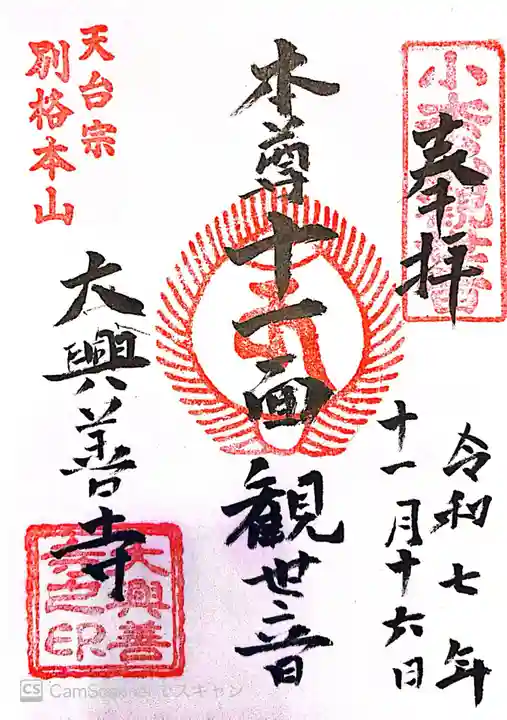 奉拝
令和七年
十一月十六日
本尊十一面観世音
天台宗
別格本山
大興善寺
大興善
CS CamScanner でスキャン